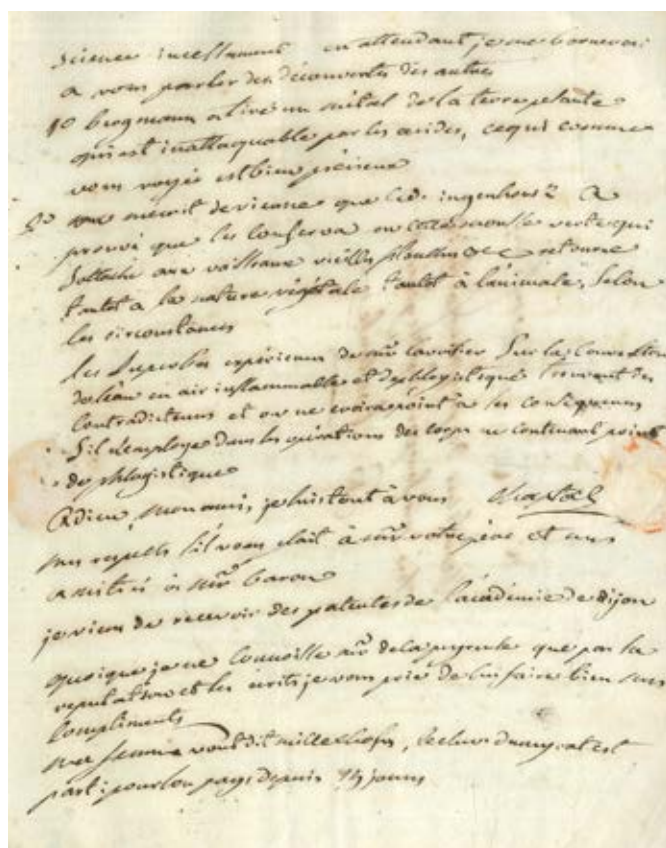 science incessament en attendant je me bornerai
a vous parler des decouvertes des autres
1o bergmann a tiré un métal de la terre pesante
qui est inattaquable par les acides, ce qui comme
vous voyés est bien précieux
2o on mecrit de vienne que le d. ingenhousz a
prouvé que les conferva ou cette mousse verte qui
sattache aux vaisseaux vieilles &c retourne
tantot a la nature végétale tantot à lanimale, selon
les circonstances
les superbes expériences de mr lavoisier sur la conversion
de leau en air inflammable et dephlogistiqué trouvent des
contradicteurs et on ne croira point a ses conséquences
s'il n'employe dans les opérations des corps ne contenant point
de phlogistique
adieu, mon ami, je suis tout à vous chaptal
mes respects s'il vous plait à mr votre père et mes
amitiés à mr baron
je viens de recevoir des patentes de l'académie de dijon
quoique je ne connoisse mr de la peyrouse que par sa
reputation et ses écrits je vous prie de lui faire bien mes
compliments
ma femme vous dit mille choses, est
parti pour son pays depuis 15 jours